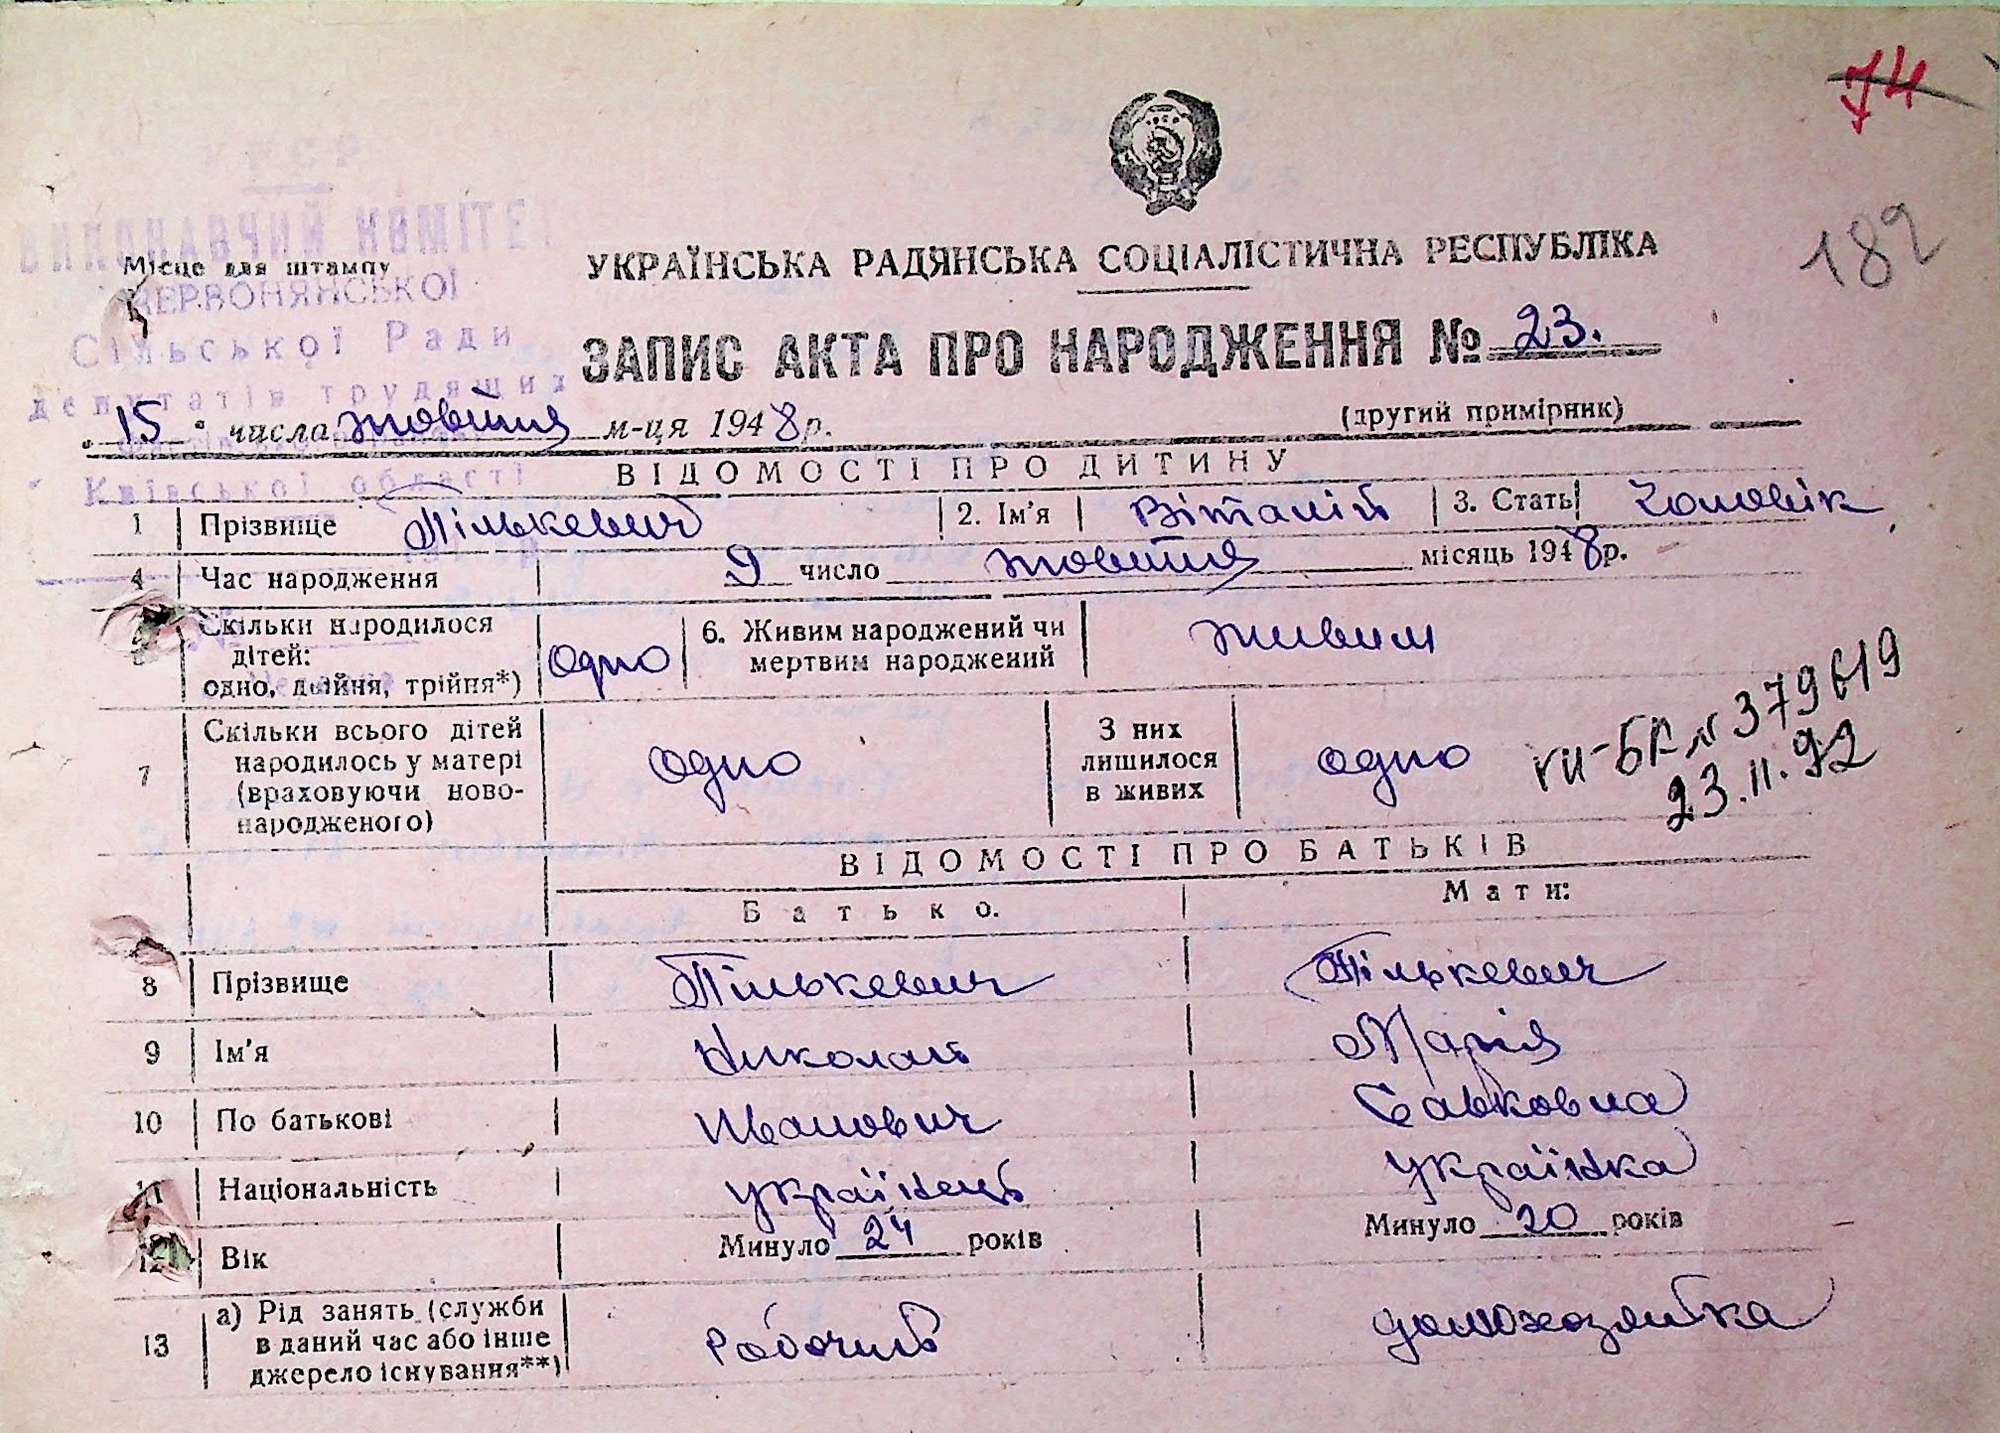 74
182
УРСР
ВИКОНАВЧИЙ КОМІТЕТ
Місце для штампу
ЧЕРВОНЯНСЬКОЇ
Сільської Ради
депутатів трудящих
Київської області
УКРАЇНСЬКА РАДЯНСЬКА СОЦІАЛІСТИЧНА РЕСПУБЛІКА
ЗАПИС АКТА ПРО НАРОДЖЕННЯ № 23.
„15“ числа жовтня м-ця 1948 р.
(другий примірник)
ВІДОМОСТІ ПРО ДИТИНУ
1 Прізвище Пількевич 2. Ім'я Віталій 3. Стать Чоловік
4 Час народження 9 число жовтня місяць 1948 р.
5 Скільки народилося дітей: одно, двійня, трійня*) одно 6. Живим народжений чи мертвим народжений живим
7 Скільки всього дітей народилось у матері (враховуючи новонародженого) одно З них лишилося в живих одно
УИ-БК № 379619
23.11.92
ВІДОМОСТІ ПРО БАТЬКІВ
Батько. Мати:
8 Прізвище Пількевич Пількевич
9 Ім'я Николай Марія
10 По батькові Иванович Савковна
11 Національність українець українка
12 Вік Минуло 24 років Минуло 20 років
13 а) Рід занять (служби в даний час або інше джерело існування**) Робочий домохозяйка